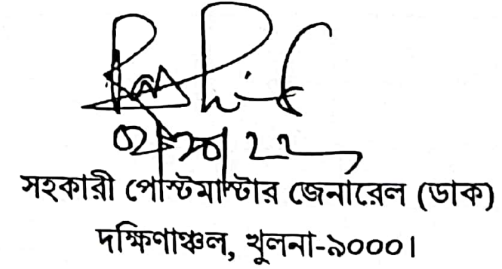 সহকারী পোস্টমাস্টার জেনারেল (ডাক)
দক্ষিণাঞ্চল, খুলনা-৯০০০।